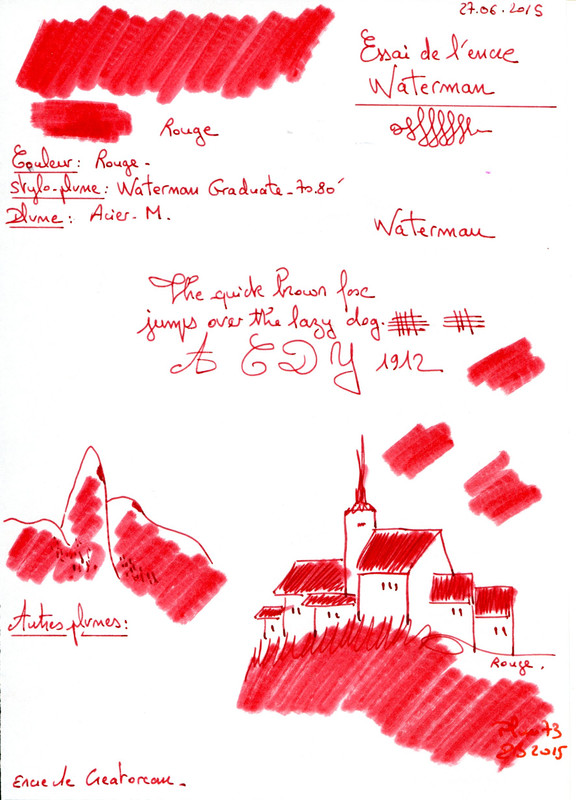 27.06.2015
Essai de l'encre
Waterman
Rouge
Couleur: Rouge-
stylo-plume: Waterman Graduate-70.80'
Plume: Acier-M.
Waterman
The quick brown fox
jumps over the lazy dog.
A E D Y 1912
Autres plumes:
Rouge.
2015
Encre de